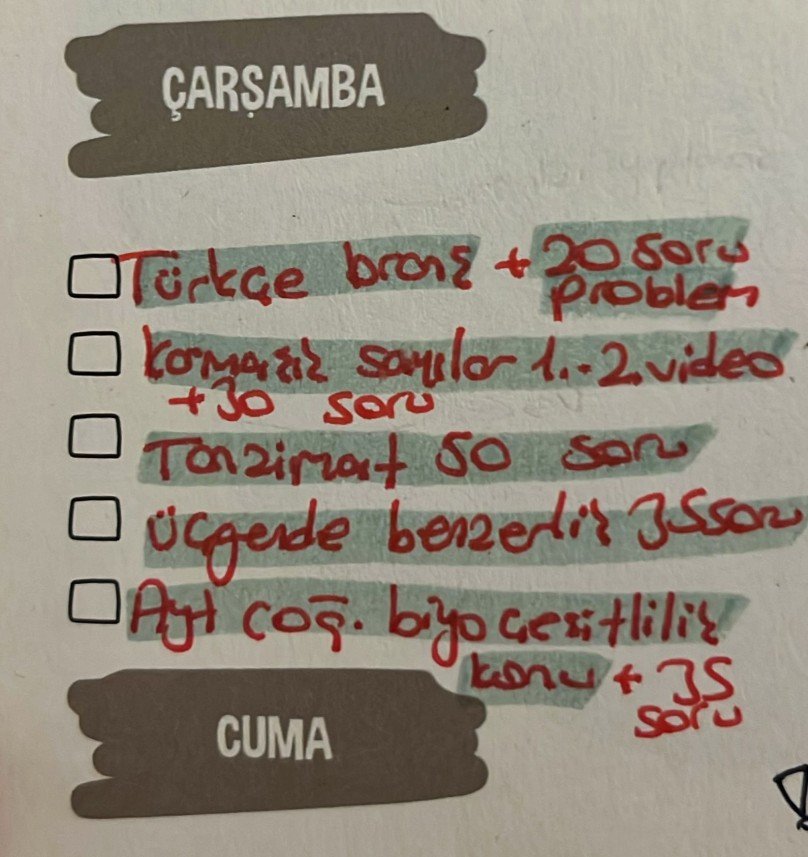 ÇARŞAMBA
Türkçe branş + 20 soru
problem
karmaşık sayılar 1.-2.video
+30 soru
Tanzimat 50 soru
üçgende benzerlik 35 soru
Ayt coğ. biyoçeşitlilik
konu + 35
soru
CUMA